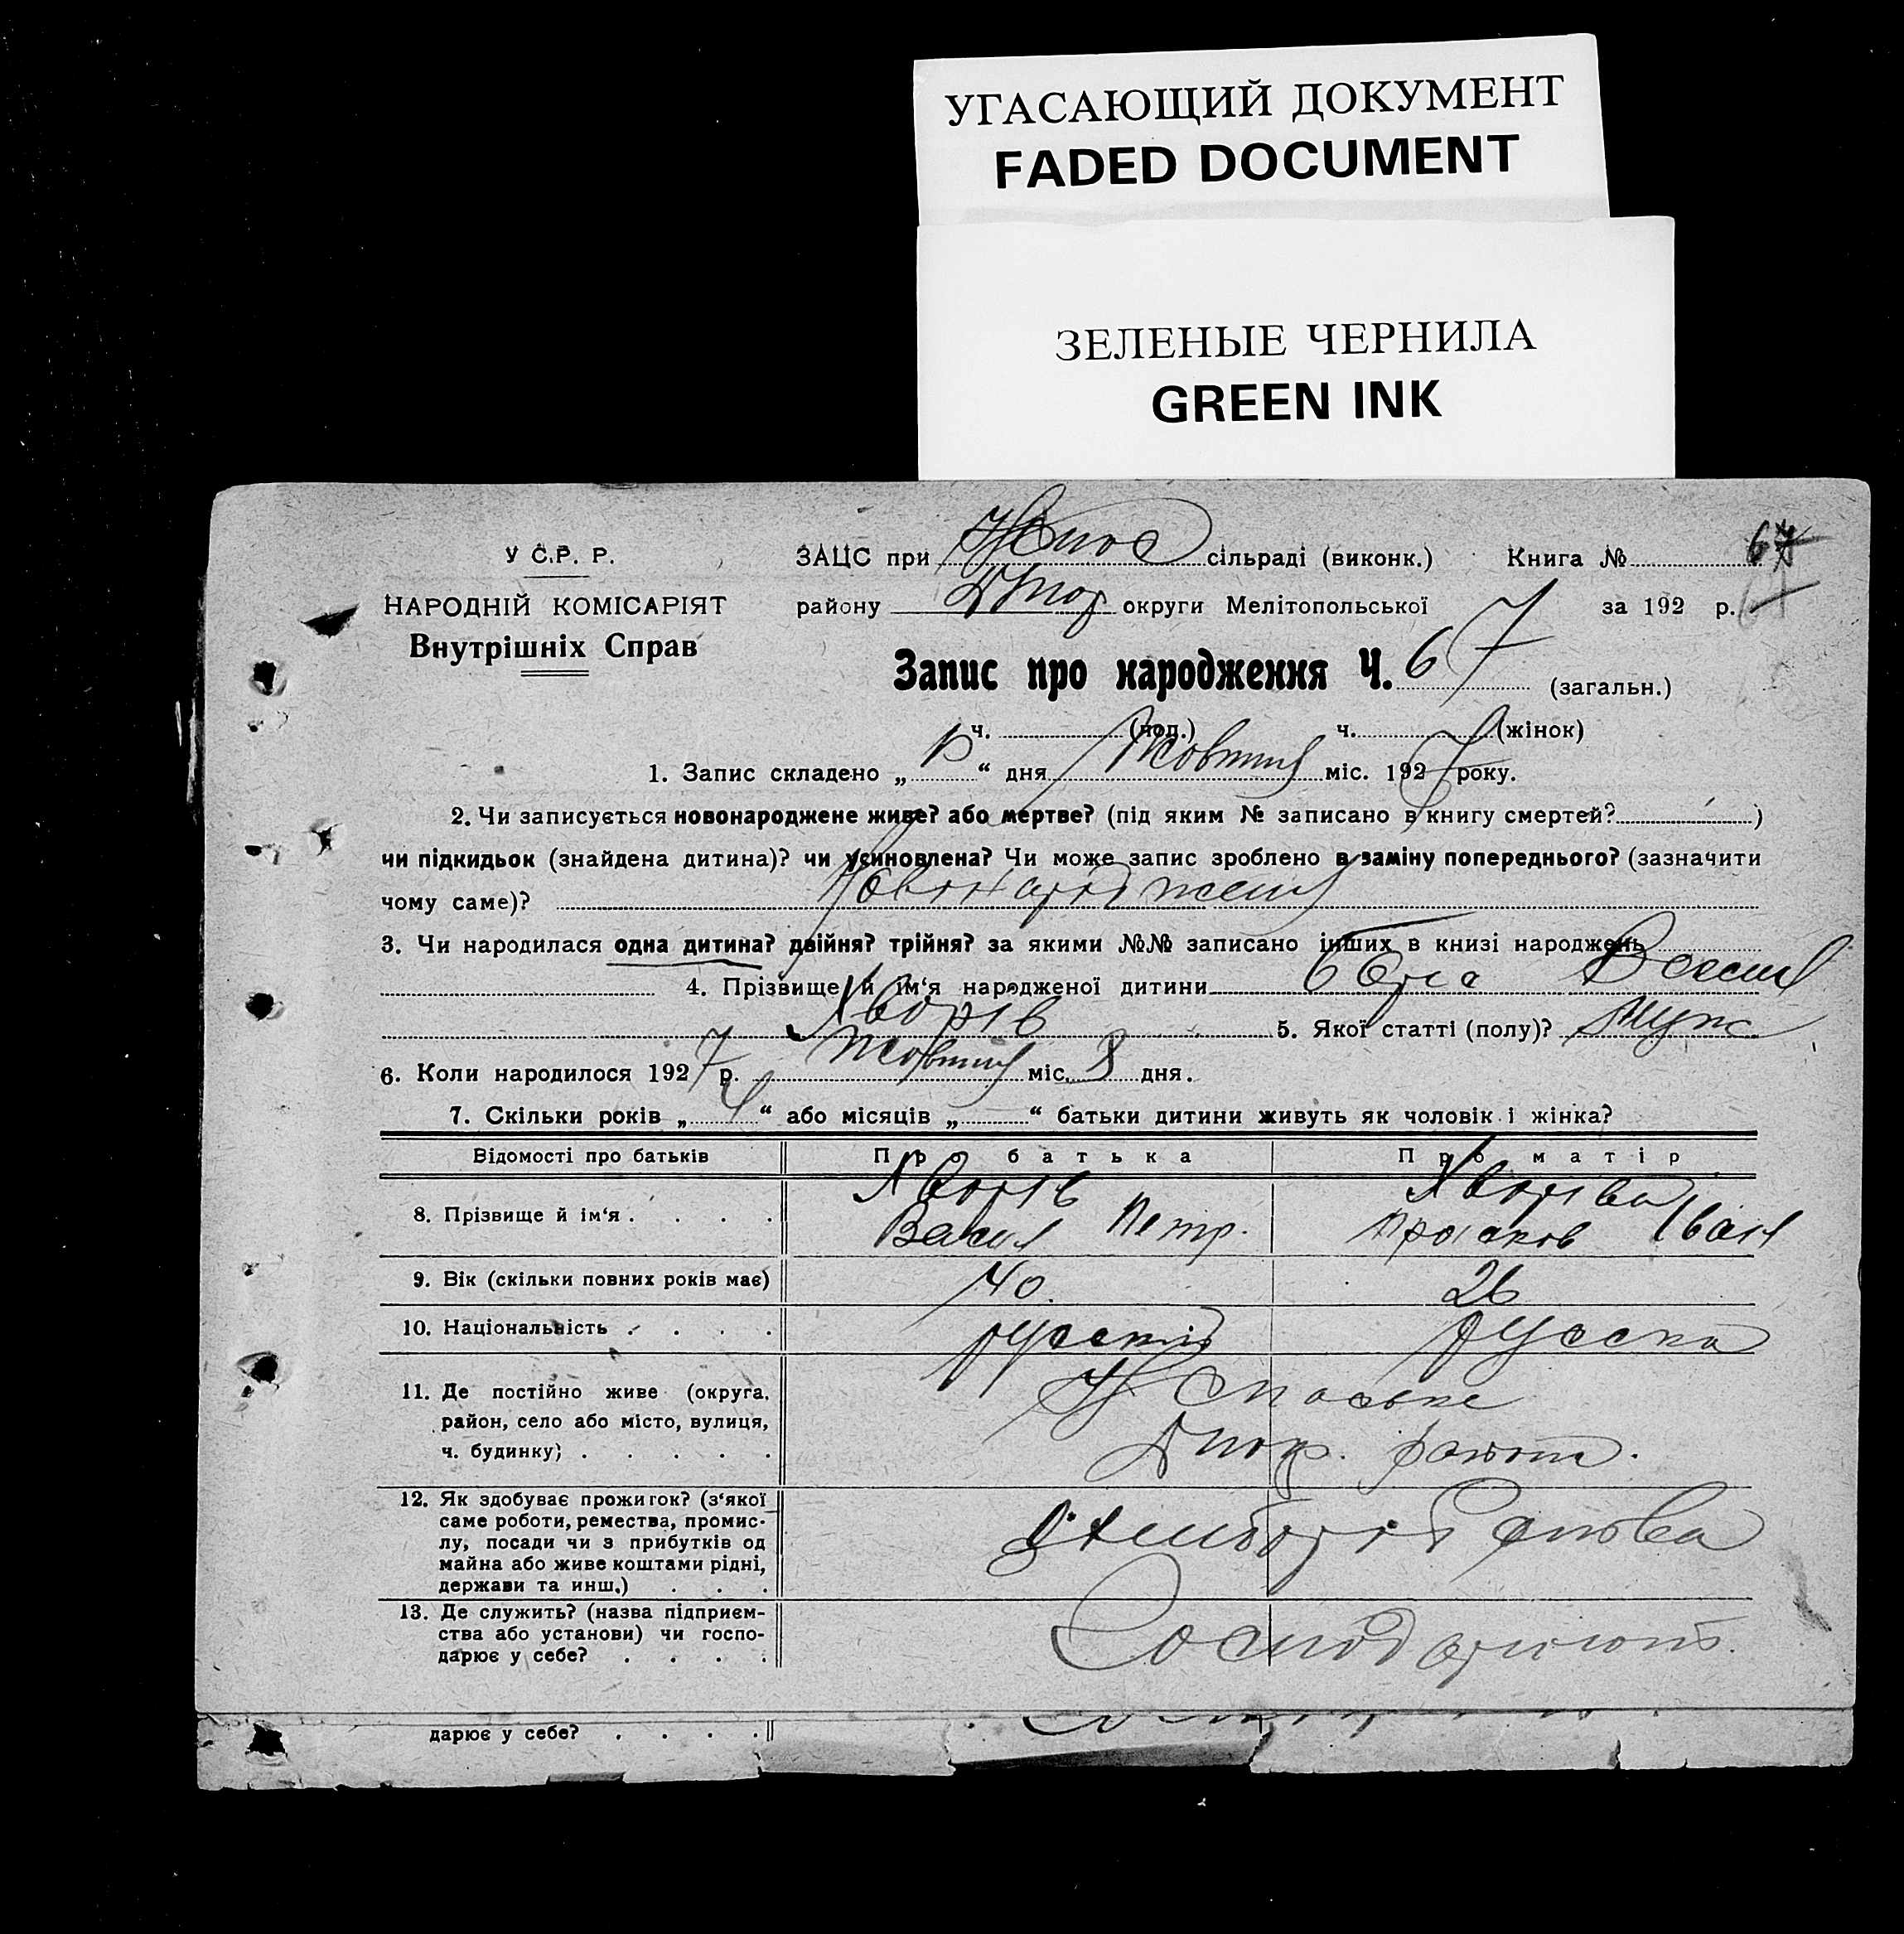 УГАСАЮЩИЙ ДОКУМЕНТ
FADED DOCUMENT
ЗЕЛЕНЫЕ ЧЕРНИЛА
GREEN INK
У С.Р. Р.
НАРОДНІЙ КОМІСАРІЯТ
Внутрішніх Справ
ЗАЦС при сільраді (виконк.) Книга № 67
району округи Мелітопольської за 192 р.
Запис про народження Ч. 67 (загальн.)
ч. (пол.) ч. (жінок)
1. Запис складено „ “ дня Жовтня міс. 1927 року.
2. Чи записується новонароджене живе? або мертве? (під яким № записано в книгу смертей? )
чи підкидьок (знайдена дитина)? чи усиновлена? Чи може запис зроблено в заміну попереднього? (зазначити
чому саме)? Новонароджений
3. Чи народилася одна дитина? двійня? трійня? за якими №№ записано інших в книзі народжень
4. Прізвище й ім‘я народженої дитини
Яворів 5. Якої статті (полу)? Муж
6. Коли народилося 1927 р. Жовтня міс. 8 дня.
7. Скільки років „ 4 “ або місяців „ “ батьки дитини живуть як чоловік і жінка?
Відомості про батьків Про батька Про матір
8. Прізвище й ім‘я . . . . Яворів Яворіва
Васил Петр.
9. Вік (скільки повних років має) 40. 26
10. Національність . . . . русский русска
11. Де постійно живе (округа,
район, село або місто, вулиця,
ч. будинку) . . . . . району.
12. Як здобуває прожиток? (з‘якої
саме роботи, ремества, промис-
лу, посади чи з прибутків од
майна або живе коштами рідні,
держави та инш.) . . .
13. Де служить? (назва підприєм-
ства або установи) чи госпо-
дарює у себе? . . . .
дарює у себе? . . . .